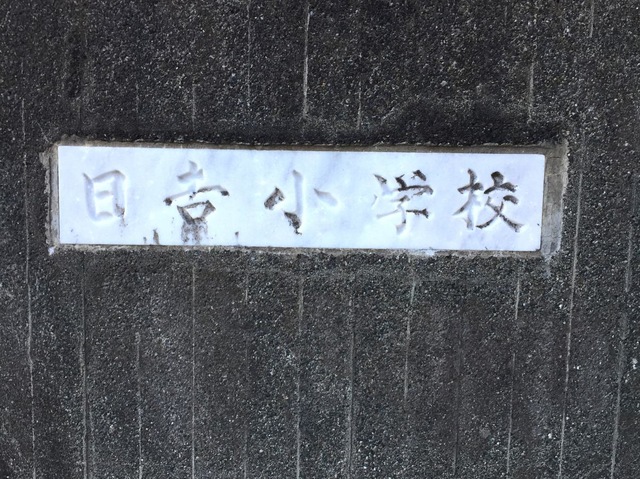 日吉小学校